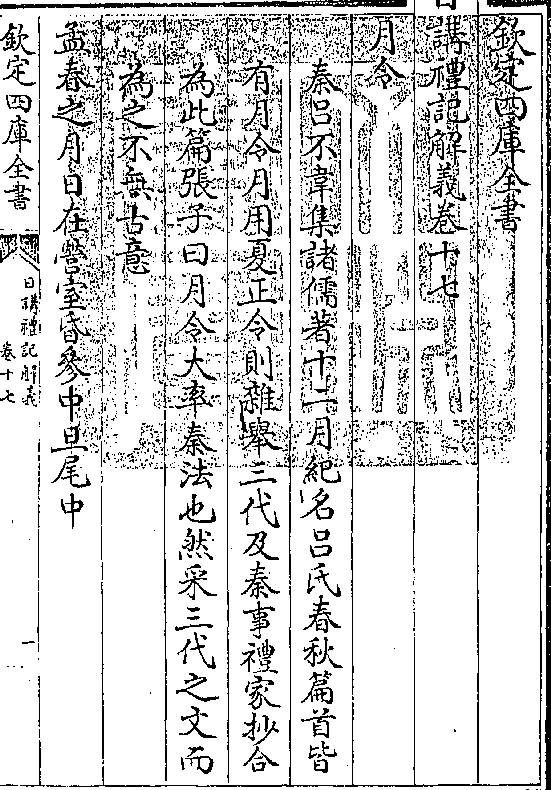 欽定四庫全書
日講禮記解義卷十七
月令
秦呂不韋集諸儒著十二月紀名呂氏春秋篇首皆
有月令月用夏正令則雜舉三代及秦事禮家抄合
為此篇張子曰月令大率秦法也然采三代之文而
為之不無古意
孟春之月日在營室昏參中旦尾中
欽定四庫全書
日講禮記解義
卷十七
一